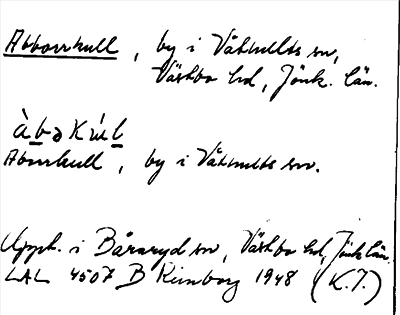 Abborrkull, by i Våthults sn,
Västbo hd, Jönk. län.
àbəkúl
Aborrkull, by i Våthults sn.
Uppt. i Båraryd sn, Västbo hd, Jönk. län.
LAL 4507 B Rimborg 1948 (K.J.)